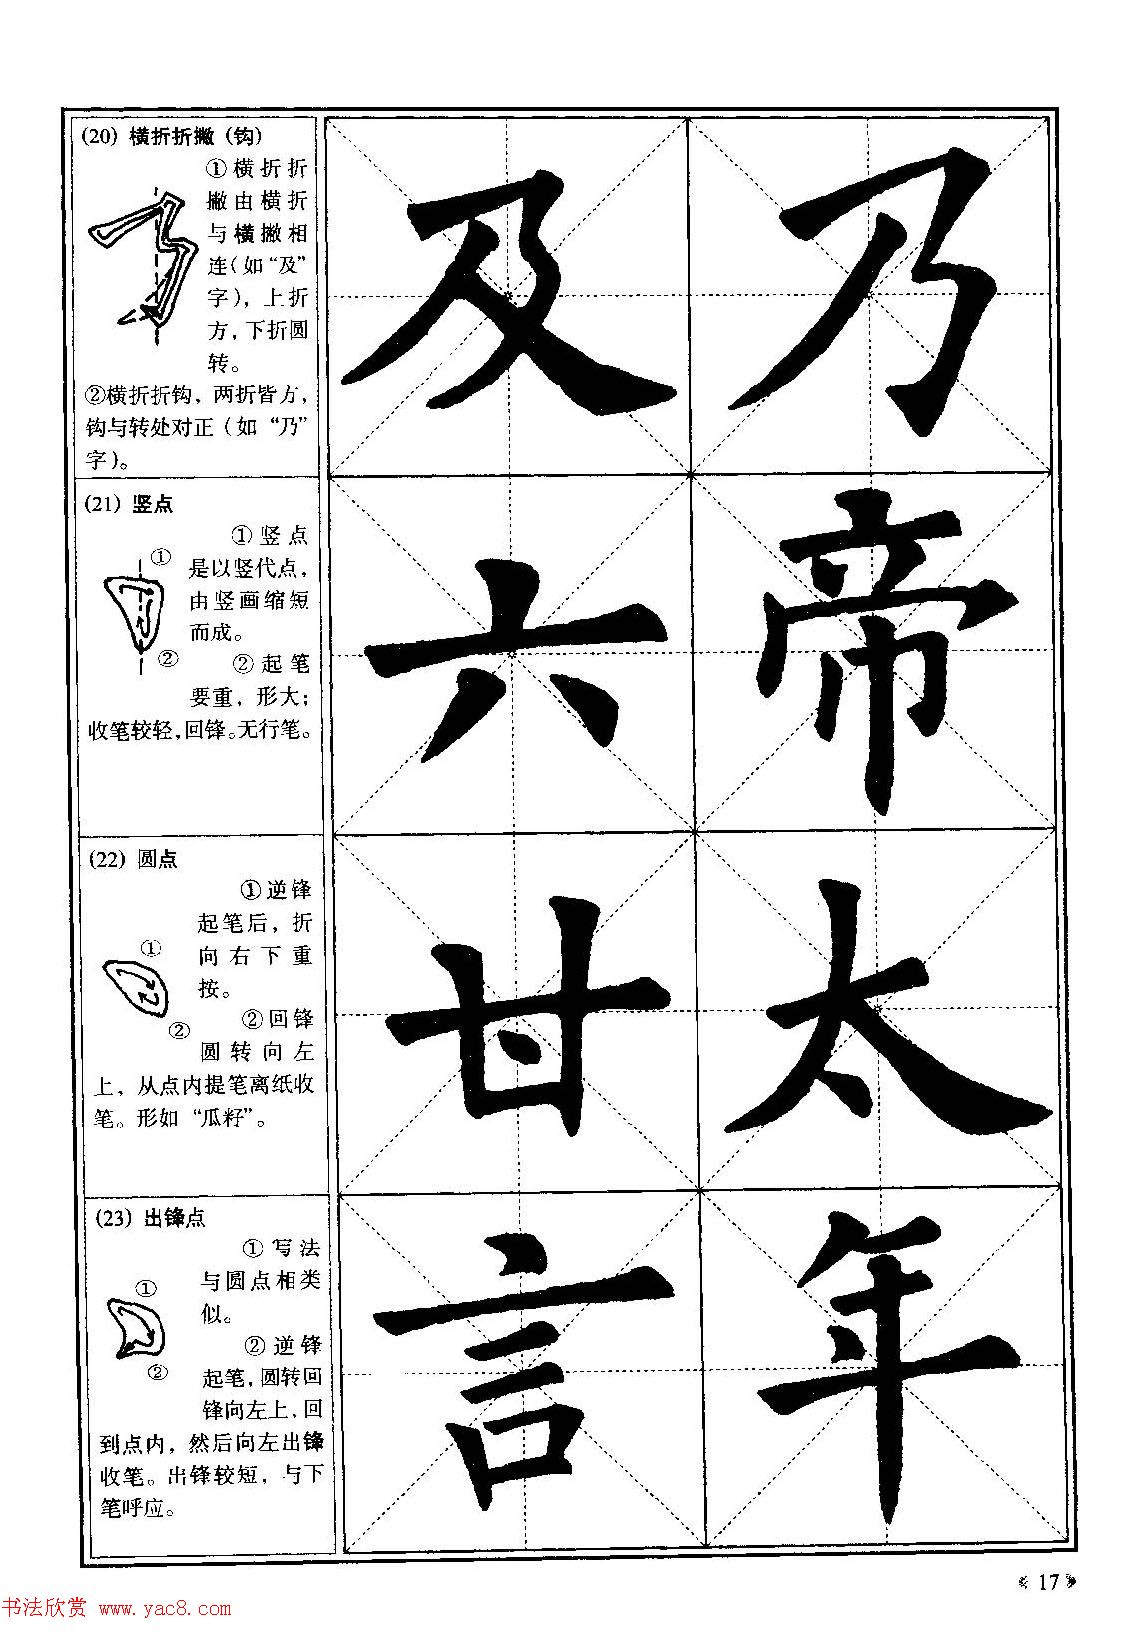 (20) 横折折撇（钩）
①横折折
撇由横折
与横撇相
连(如“及”
字)，上折
方，下折圆
转。
②横折折钩，两折皆方，
钩与转处对正（如“乃”
字）。
及 乃
(21) 竖点
①竖点
是以竖代点，
由竖画缩短
而成。
②起笔
要重，形大；
收笔较轻，回锋。无行笔。
①
②
六 帝
(22) 圆点
①逆锋
起笔后，折
向右下重
按。
②回锋
圆转向左
上，从点内提笔离纸收
笔。形如“瓜籽”。
①
②
甘 太
(23) 出锋点
①写法
与圆点相类
似。
②逆锋
起笔，圆转回
锋向左上，回
到点内，然后向左出锋
收笔。出锋较短，与下
笔呼应。
①
②
言 年
17
书法欣赏 www.yac8.com